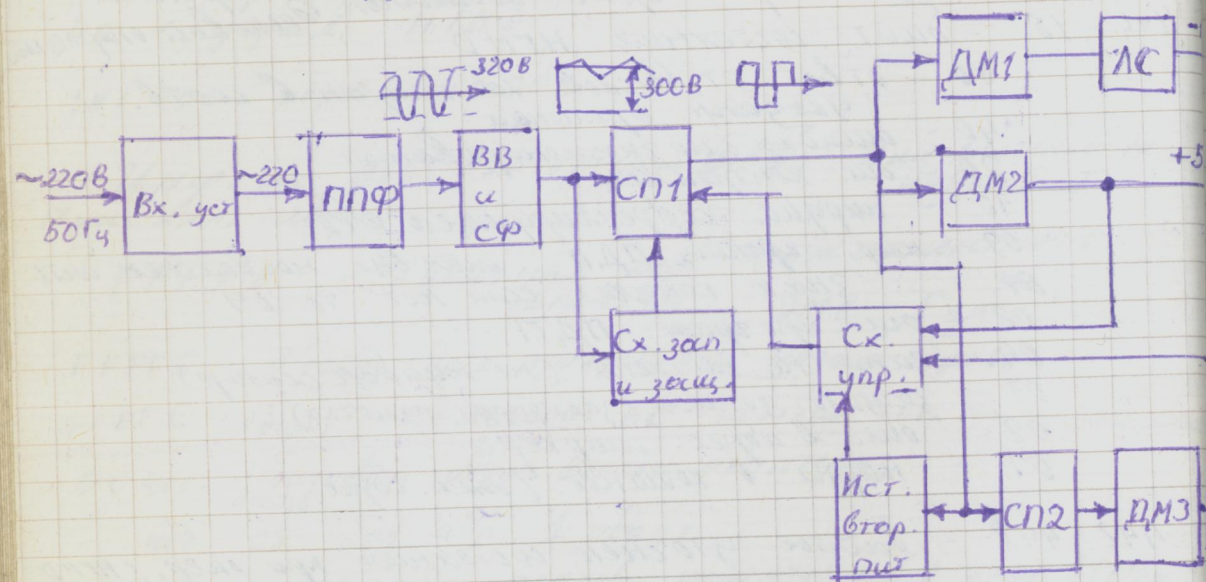 320В
300В
ДМ1
ЛС
~220В
50Гц
Вх. уст
~220
ППФ
ВВ
и
СФ
СП1
ДМ2
+5
Сх. зап
и защ.
Сх.
упр.
Ист.
втор.
пит
СП2
ДМ3